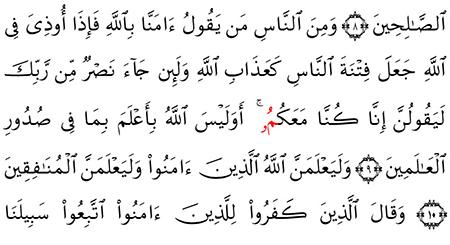 ٱلصَّـٰلِحِينَ ۝٨ وَمِنَ ٱلنَّاسِ مَن يَقُولُ ءَامَنَّا بِٱللَّهِ فَإِذَآ أُوذِىَ فِى
ٱللَّهِ جَعَلَ فِتْنَةَ ٱلنَّاسِ كَعَذَابِ ٱللَّهِ وَلَئِن جَآءَ نَصْرٌ مِّن رَّبِّكَ
لَيَقُولُنَّ إِنَّا كُنَّا مَعَكُمُۥٓ ۚ أَوَلَيْسَ ٱللَّهُ بِأَعْلَمَ بِمَا فِى صُدُورِ
ٱلْعَـٰلَمِينَ ۝٩ وَلَيَعْلَمَنَّ ٱللَّهُ ٱلَّذِينَ ءَامَنُوا۟ وَلَيَعْلَمَنَّ ٱلْمُنَـٰفِقِينَ
۝١٠ وَقَالَ ٱلَّذِينَ كَفَرُوا۟ لِلَّذِينَ ءَامَنُوا۟ ٱتَّبِعُوا۟ سَبِيلَنَا